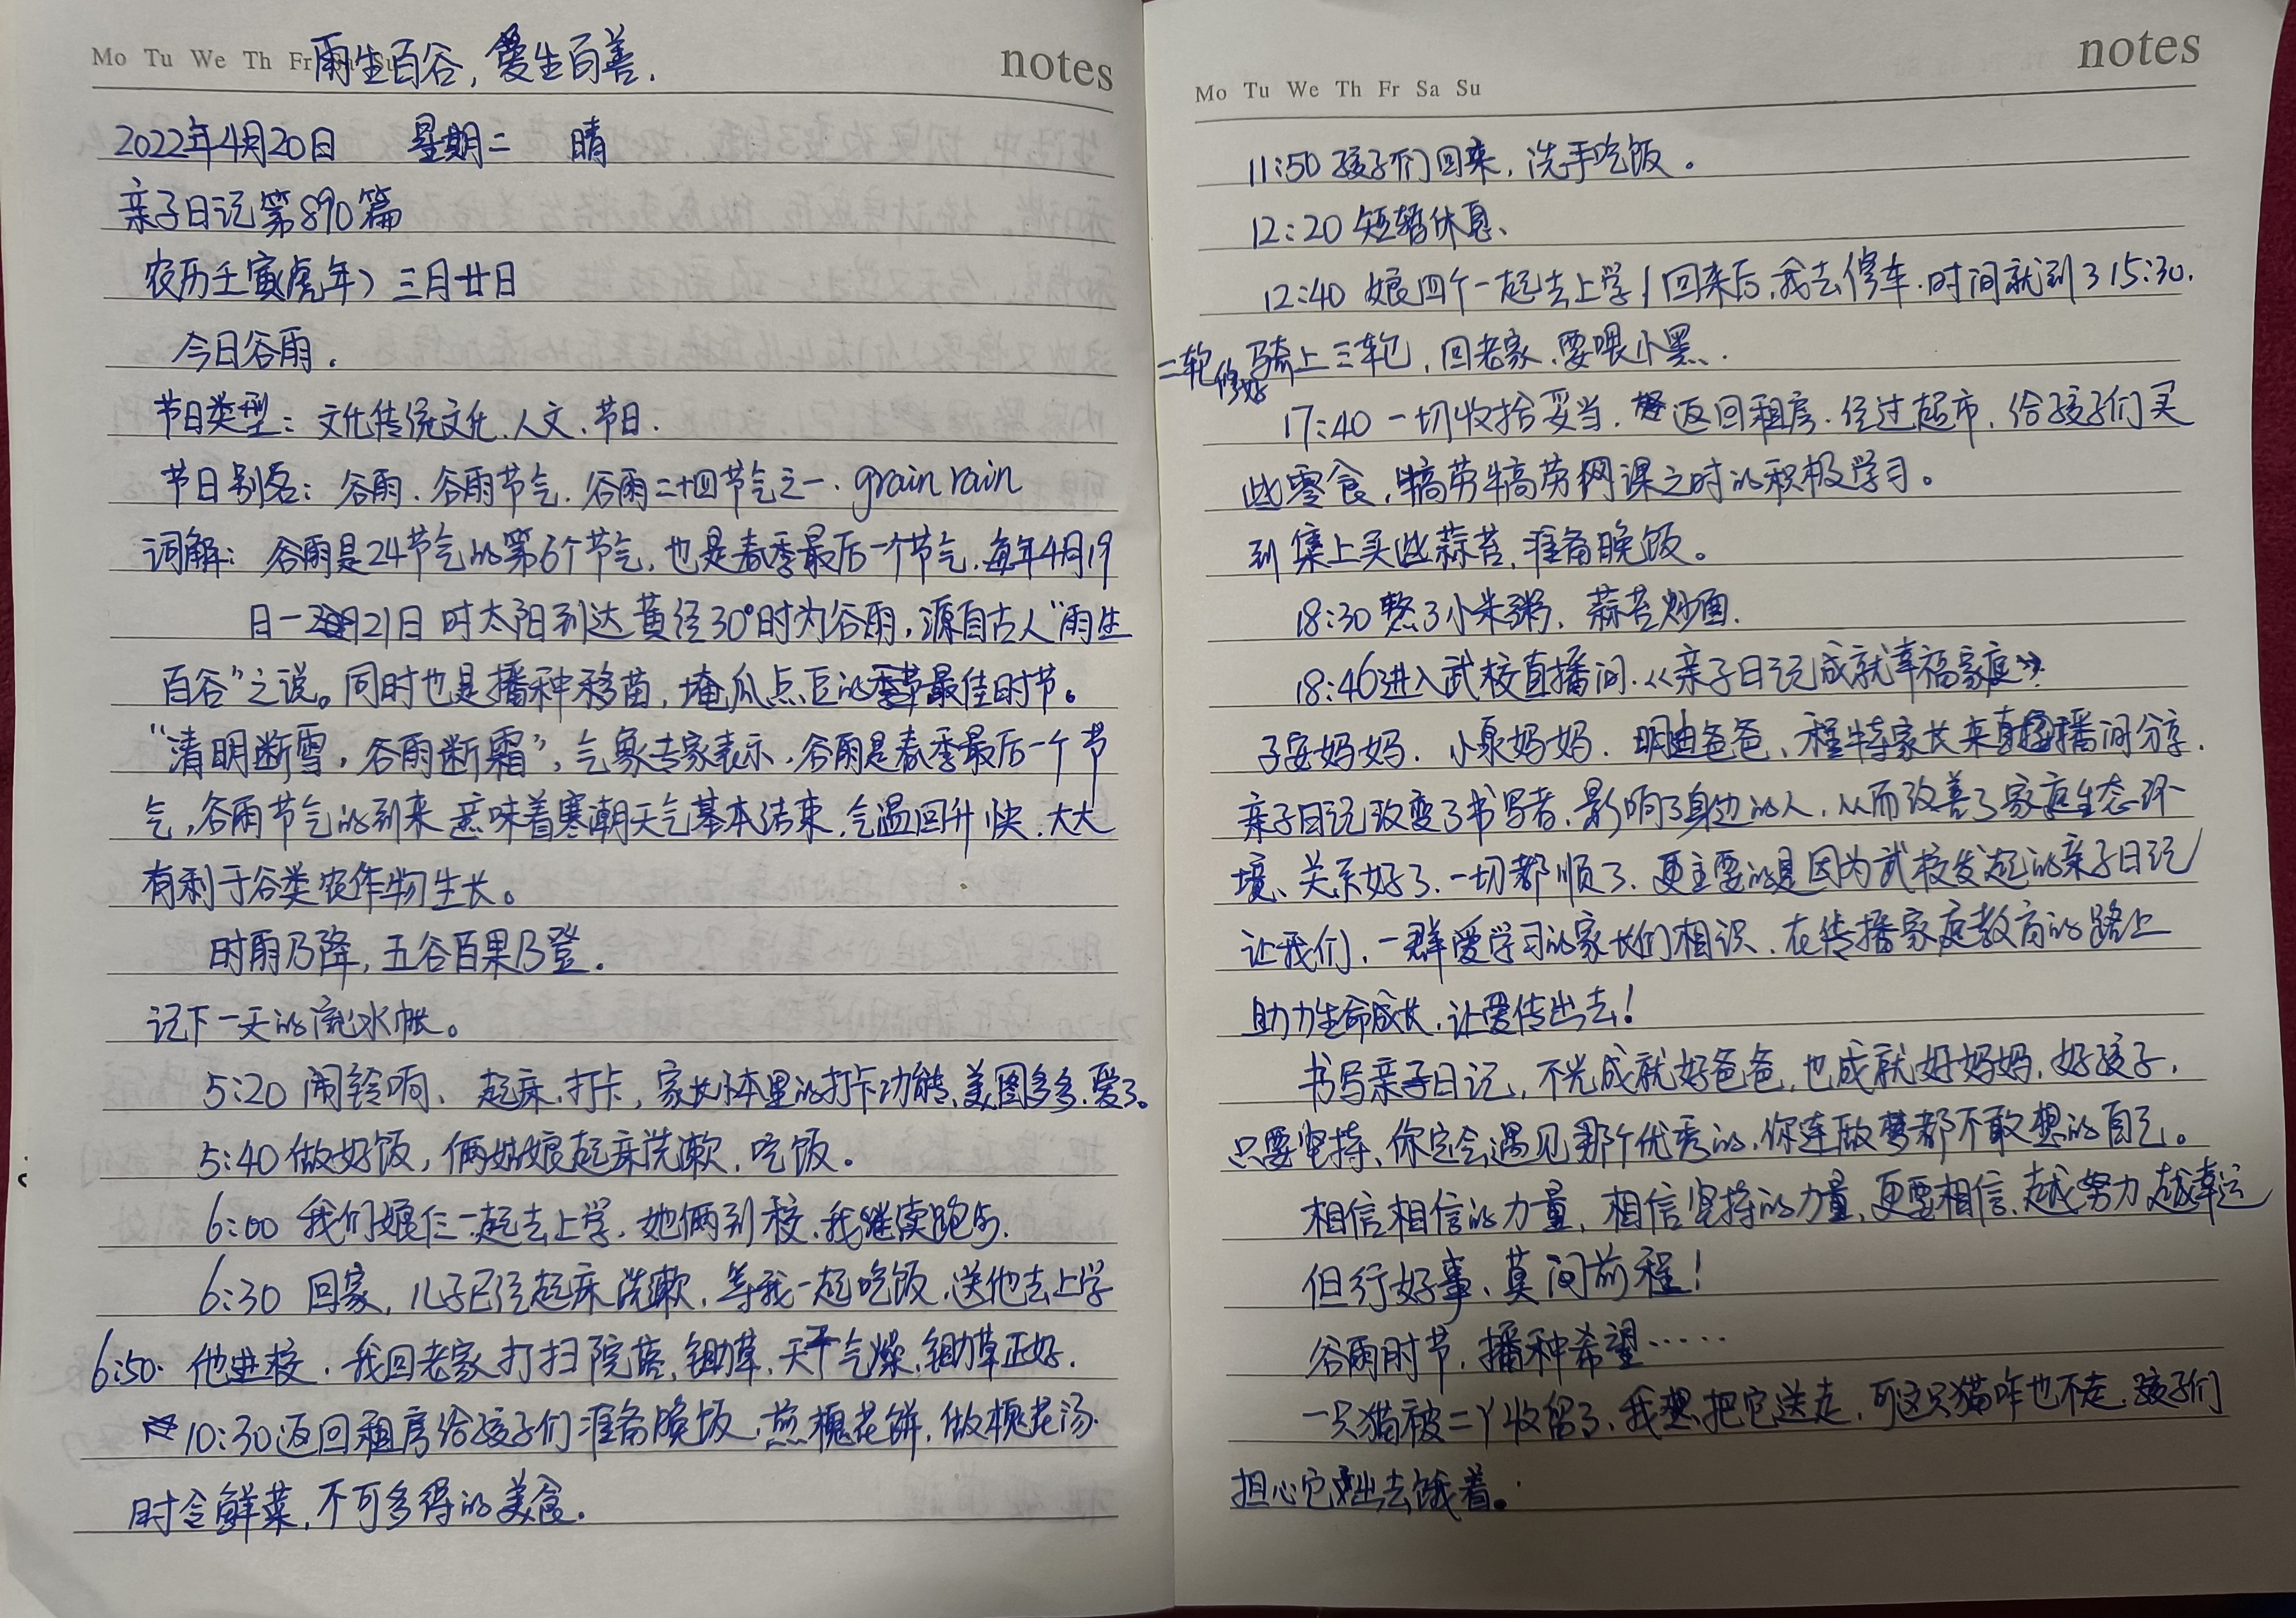 Mo Tu We Th Fr Sa Su
雨生百谷，爱生百善.
notes
2022年4月20日 星期二 晴
亲子日记第890篇
农历壬寅(虎年) 三月廿日
今日谷雨.
节日类型：文化传统文化.人文.节日.
节日别名：谷雨.谷雨节气.谷雨二十四节气之一. grain rain
词解：谷雨是24节气的第6个节气，也是春季最后一个节气，每年4月19
日－21日 时太阳到达黄经30°时为谷雨，源自古人“雨生
百谷”之说。同时也是播种移苗，埯瓜点豆的最佳时节。
“清明断雪，谷雨断霜”，气象专家表示，谷雨是春季最后一个节
气，谷雨节气的到来意味着寒潮天气基本结束，气温回升快，大大
有利于谷类农作物生长。
时雨乃降，五谷百果乃登.
记下一天的流水帐。
5:20 闹铃响、起床.打卡，家长体里的打卡功能，美图多多.爱了。
5:40 做好饭，俩姑娘起床洗漱，吃饭。
6:00 我们娘仨一起去上学，她俩到校，我继续跑步.
6:30 回家，儿子已经起床洗漱，等我一起吃饭，送他去上学
6:50. 他进校，我回老家打扫院落，锄草，天干气燥，锄草正好.
10:30返回租房给孩子们准备晚饭，煎槐花饼，做槐花汤.
时令鲜菜，不可多得的美食.
notes
Mo Tu We Th Fr Sa Su
11:50 孩子们回来，洗手吃饭。
12:20 短暂休息、
12:40 娘四个一起去上学！回来后，我去修车.时间就到了15:30.
二轮修好 骑上三轮，回老家.要喂小黑.
17:40 一切收拾妥当，返回租房.经过超市，给孩子们买
些零食，犒劳犒劳网课之时的积极学习。
到集上买些蒜苔，准备晚饭。
18:30 熬了小米粥，蒜苔炒面.
18:46进入武校直播间.《亲子日记成就幸福家庭》
子安妈妈.小泉妈妈.明迪爸爸、程特家长来直播间分享.
亲子日记改变了书写者、影响了身边的人，从而改善了家庭生态环
境、关系好了.一切都顺了、更主要的是因为武校发起的亲子日记
让我们，一群爱学习的家长们相识，在传播家庭教育的路上
助力生命成长，让爱传出去！
书写亲子日记，不光成就好爸爸，也成就好妈妈，好孩子，
只要坚持、你定会遇见那个优秀的，你连做梦都不敢想的自己。
相信相信的力量，相信坚持的力量，更要相信，越努力越幸运
但行好事、莫问前程！
谷雨时节，播种希望……
一只猫被二丫收留了、我想把它送走，可这只猫咋也不走，孩子们
担心它出去饿着。